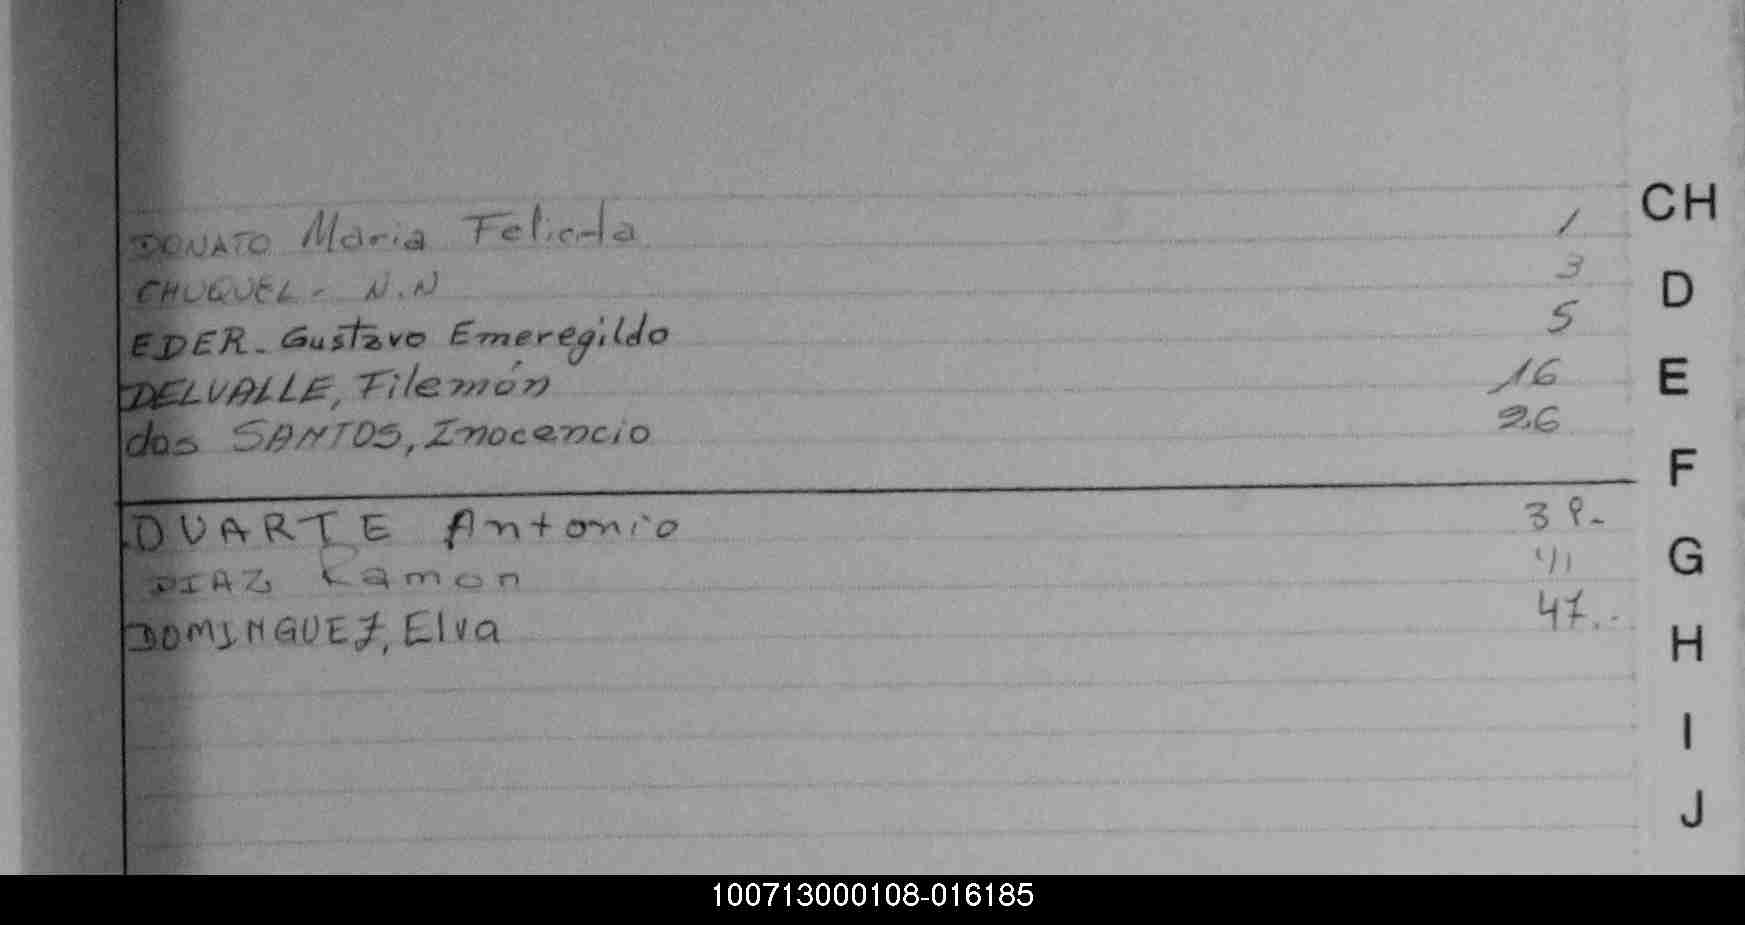 DONATO Maria Felicida 1
CHUQUEL - N.N 3
EDER - Gustavo Emeregildo 5
DELVALLE, Filemón 16
dos SANTOS, Inocencio 26
DUARTE Antonio 39-
DIAZ Ramon 41
DOMINGUEZ, Elva 47.-
CH
D
E
F
G
H
I
J
100713000108-016185